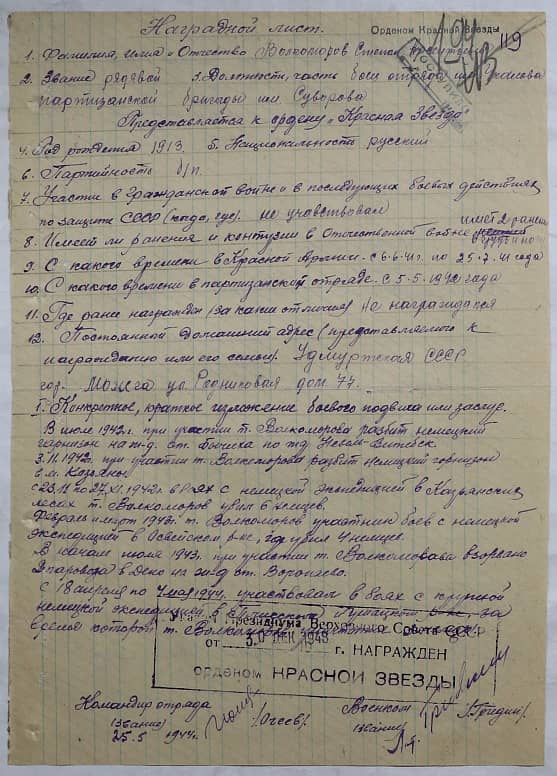 Наградной лист. Орденом Красной Звезды
119
1. Фамилия, имя и Отчество Волкоморов Степан
2. Звание рядовой 3. Должность, часть боец отряда им.
партизанской бригады им. Суворова
Представляется к ордену "Красная Звезда"
4. Год рождения 1913. 5. Национальность русский
6. Партийность б/п.
7. Участие в гражданской войне и в последующих боевых действиях
по защите СССР (когда, где). не участвовал
имеет 2 ранения
8. Имеет ли ранения и контузии в Отечественной войне
9. С какого времени в Красной Армии. с 6.6.41г. по 25.7.41 года
10. С какого времени в партизанском отряде. С 5.5.1942 года
11. Где ранее награжден (за какие отличия) Не награждался
12. Постоянный домашний адрес (представляемого к
награждению или его семьи). Удмуртская СССР
гор. Можга ул. Родниковая дом 77.
1. Конкретное, краткое изложение боевого подвига или заслуг.
В июле 1942г. при участии т. Волкоморова разбит немецкий
гарнизон на ж.д. ст. Бычиха по ж.д. Невель-Витебск.
3.11.1942г. при участии т. Волкоморова разбит немецкий гарнизон
в м. Козьяны.
с 23.11 по 27.XI.1942г в боях с немецкой экспедицией в Козьянских
лесах т. Волкоморов убил 6 немцев.
Февраль и март 1943г. т. Волкоморов участник боев с немецкой
экспедицией в Освейском р-не, где убил 4 немцев.
В начале июля 1943. при участии т. Волкоморова взорвано
2 паровоза в депо на ж-д ст. Воропаево.
С 18 апреля по 4 мая 1944г. участвовал в боях с крупной
немецкой экспедицией в
время которой т.
Указом Президиума Верховного Совета СССР
от 30 ДЕК 1948 г. НАГРАЖДЕН
орденом КРАСНОЙ ЗВЕЗДЫ
Командир отряда Военком
(звание) звание
25.5 1944г.